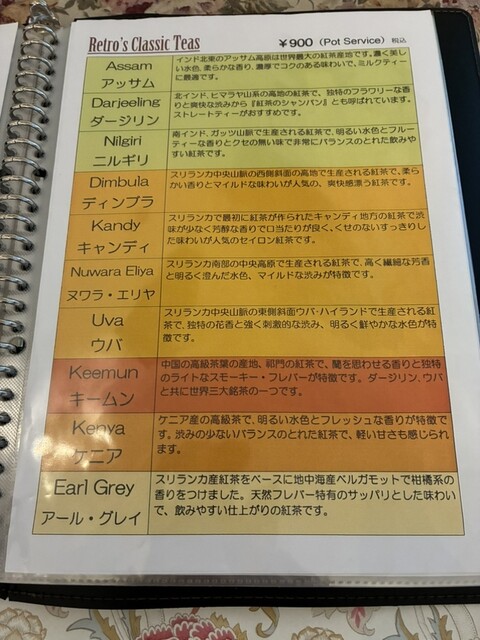 Retro's Classic Teas ￥900 (Pot Service) 税込
Assam
アッサム
インド北東のアッサム高原は世界最大の紅茶産地です。濃く美し
い水色、柔らかな香り、濃厚でコクのある味わいで、ミルクティー
に最適です。
Darjeeling
ダージリン
北インド、ヒマラヤ山系の高地の紅茶で、独特のフラワリーな香
りと爽快な渋みから『紅茶のシャンパン』とも呼ばれています。
ストレートティーがおすすめです。
Nilgiri
ニルギリ
南インド、ガッツ山脈で生産される紅茶で、明るい水色とフルー
ティーな香りとクセの無い味で非常にバランスのとれた飲みや
すい紅茶です。
Dimbula
ディンブラ
スリランカ中央山脈の西側斜面の高地で生産される紅茶で、柔ら
かい香りとマイルドな味わいが人気の、爽快感漂う紅茶です。
Kandy
キャンディ
スリランカで最初に紅茶が作られたキャンディ地方の紅茶で渋
味が少なく芳醇な香りで口当たりが良く、くせのないすっきりし
た味わいが人気のセイロン紅茶です。
Nuwara Eliya
ヌワラ・エリヤ
スリランカ南部の中央高原で生産される紅茶で、高く繊細な芳香
と明るく澄んだ水色、マイルドな渋みが特徴です。
Uva
ウバ
スリランカ中央山脈の東側斜面ウバ・ハイランドで生産される紅
茶で、独特の花香と強く刺激的な渋み、明るく鮮やかな水色が特
徴です。
Keemun
キームン
中国の高級茶葉の産地、祁門の紅茶で、蘭を思わせる香りと独特
のライトなスモーキー・フレバーが特徴です。ダージリン、ウバ
と共に世界三大銘茶の一つです。
Kenya
ケニア
ケニア産の高級茶で、明るい水色とフレッシュな香りが特徴で
す。渋みの少ないバランスのとれた紅茶で、軽い甘さも感じられ
ます。
Earl Grey
アール・グレイ
スリランカ産紅茶をベースに地中海産ベルガモットで柑橘系の
香りをつけました。天然フレバー特有のサッパリとした味わい
で、飲みやすい仕上がりの紅茶です。